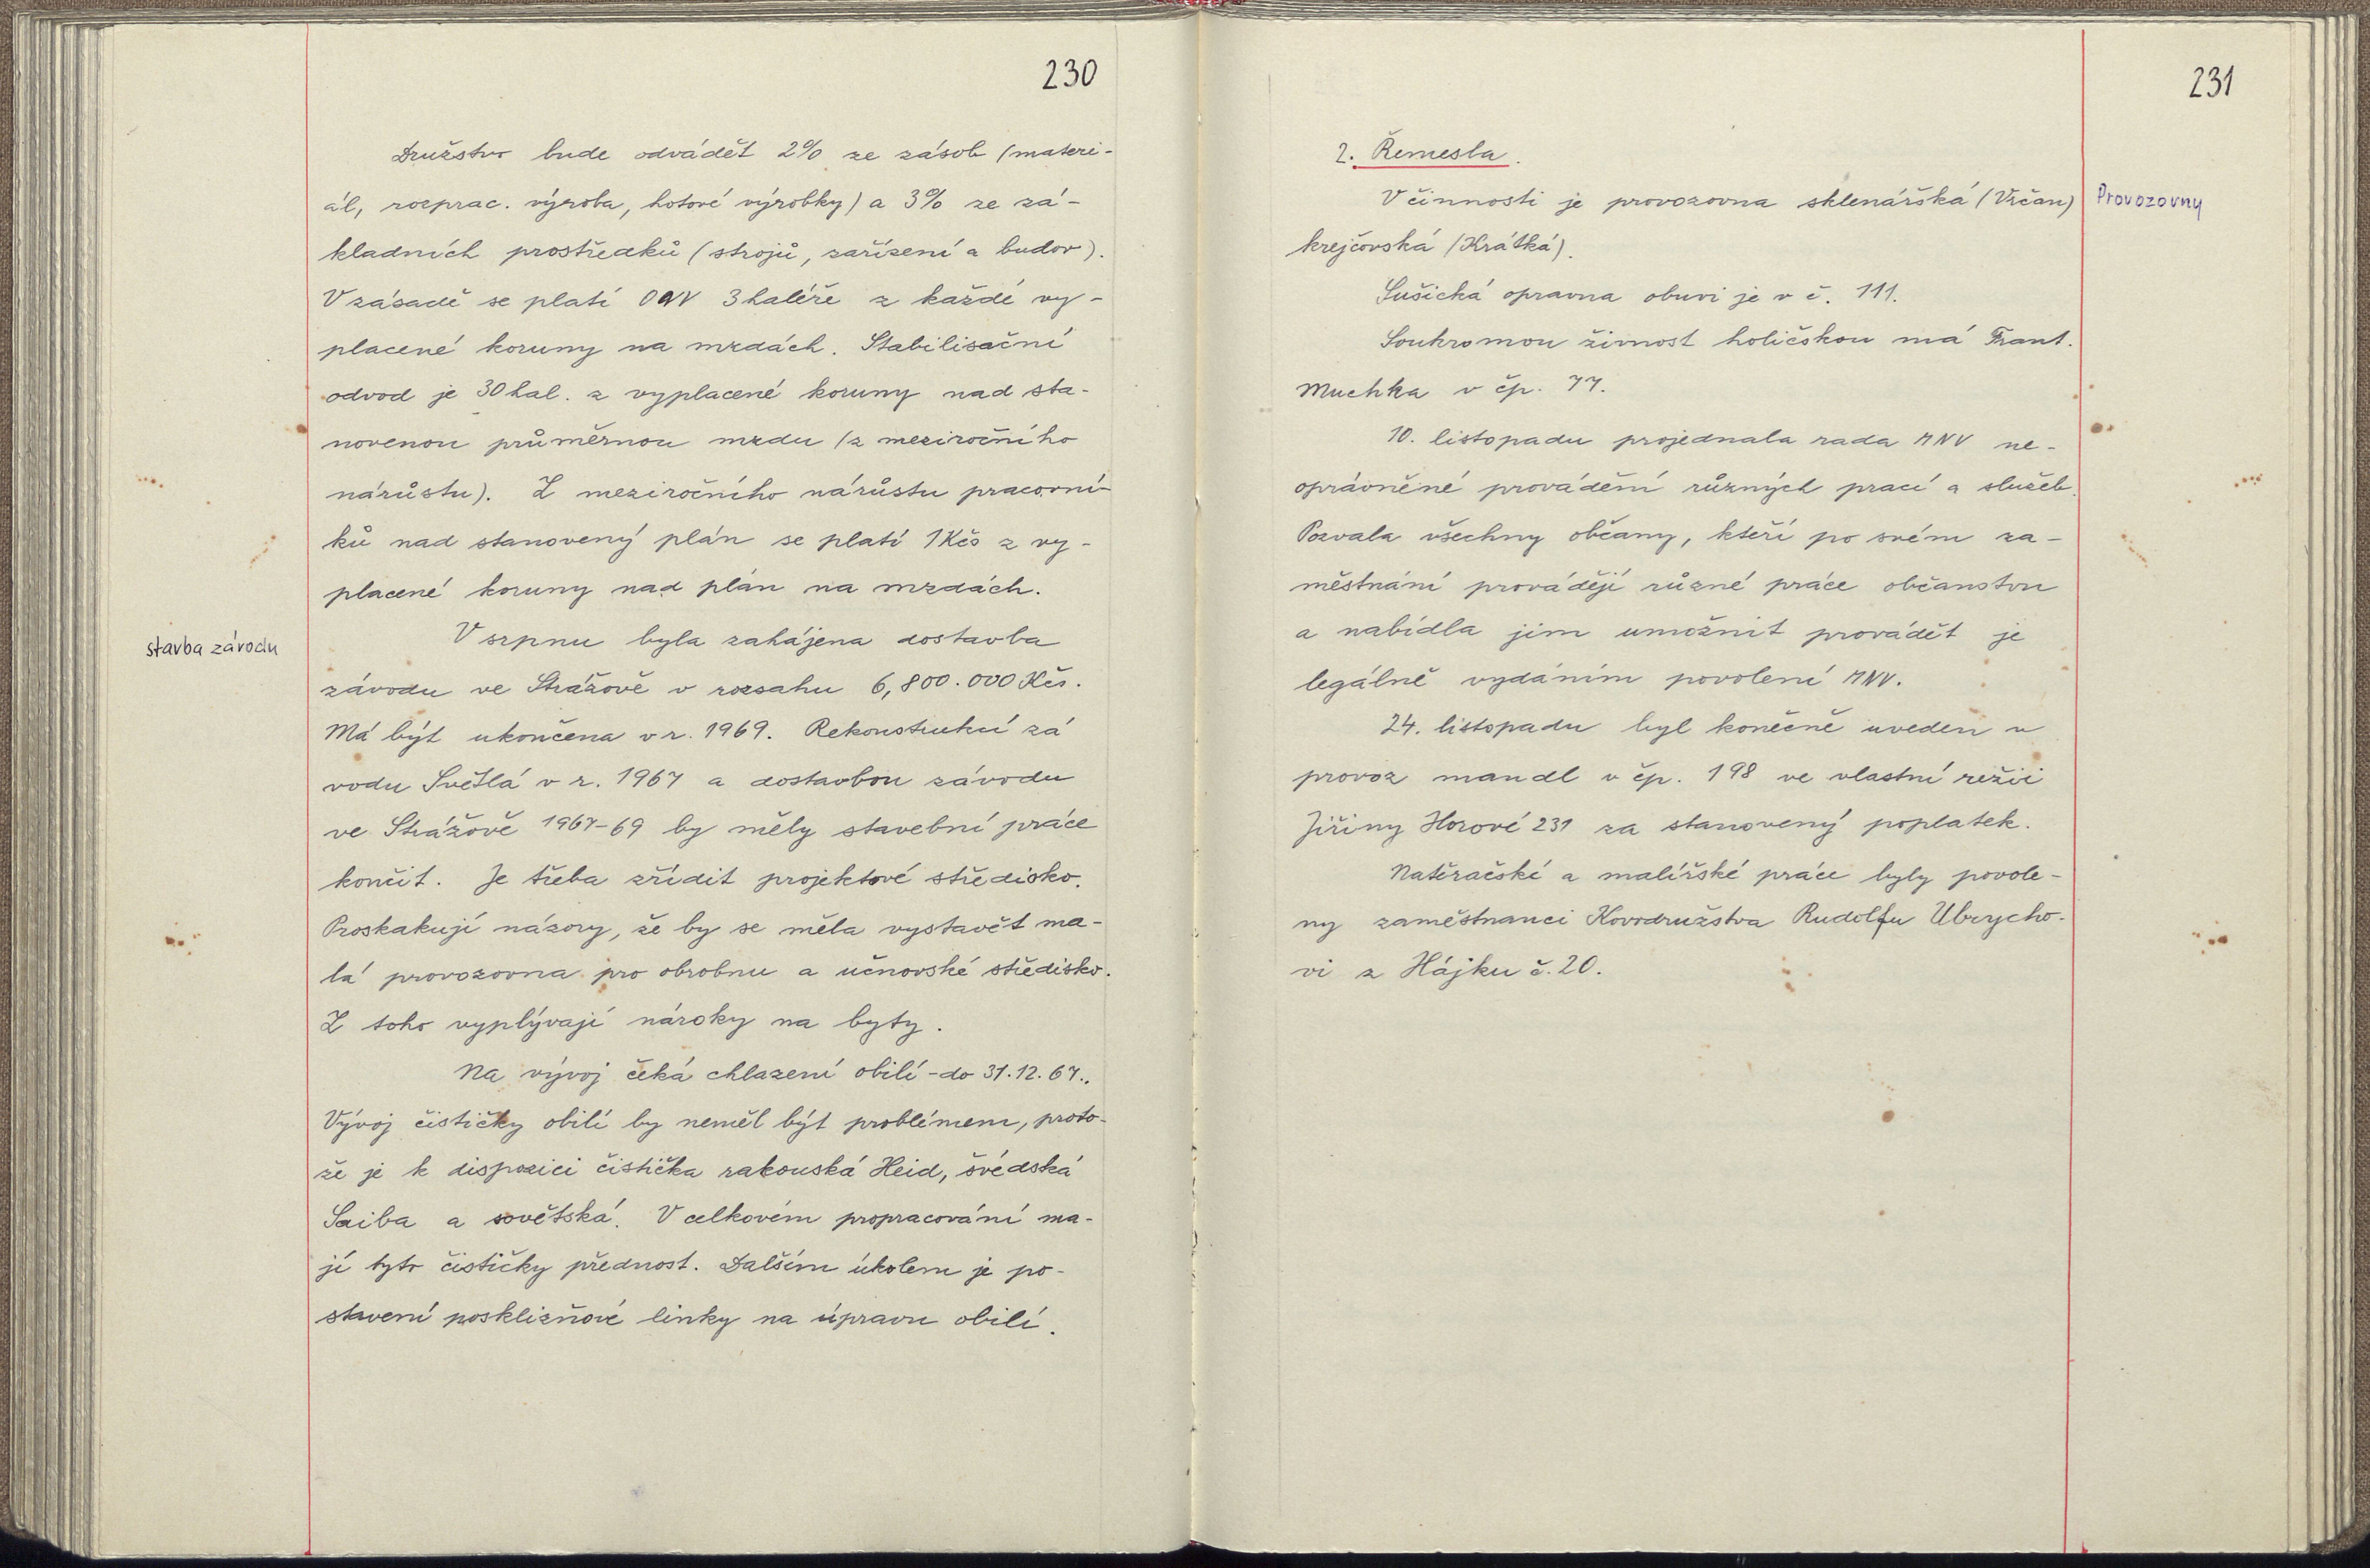 230
Družstvo bude odvádět 2% ze zásob (materi-
ál, rozprac. výroba, hotové výrobky) a 3% ze zá-
kladních prostředků (strojů, zařízení a budov).
V zásadě se platí ONV 3 haléře z každé vy-
placené koruny na mzdách. Stabilisační
odvod je 30 hal. z vyplacené koruny nad sta-
novenou průměrnou mzdu (z meziročního
nárůstu). Z meziročního nárůstu pracovní-
ků nad stanovený plán se platí 1 Kčs z vy-
placené koruny nad plán na mzdách.
stavba závodu
V srpnu byla zahájena dostavba
závodu ve Strážově v rozsahu 6,800.000 Kčs.
Má být ukončena v r. 1969. Rekonstrukcí zá
vodu Světlá v r. 1967 a dostavbou závodu
ve Strážově 1967-69 by měly stavební práce
končit. Je třeba zřídit projektové středisko.
Proskakují názory, že by se měla vystavět ma-
lá provozovna pro obrobnu a učnovské středisko.
Z toho vyplývají nároky na byty.
Na vývoj čeká chlazení obilí - do 31.12.67..
Vývoj čističky obilí by neměl být problémem, proto-
že je k disposici čistička rakouská Heid, švédská
Saiba a sovětská. V celkovém propracování ma-
jí tyto čističky přednost. Dalším úkolem je po-
stavení posklizňové linky na úpravu obilí.
231
2. Řemesla.
V činnosti je provozovna sklenářská (Vrčan)
Provozovny
krejčovská (Krátká).
Sušická opravna obuvi je v č. 111.
Soukromou živnost holičskou má Frant.
Muchka v čp. 77.
10. listopadu projednala rada MNV ne-
oprávněné provádění různých prací a služeb.
Pozvala všechny občany, kteří po svém za-
městnání provádějí různé práce občanstvu
a nabídla jim umožnit provádět je
legálně vydáním povolení MNV.
24. listopadu byl konečně uveden v
provoz mandl v čp. 198 ve vlastní režii
Jiřiny Horové 231 za stanovený poplatek.
Natěračské a malířské práce byly povole-
ny zaměstnanci Kovodružstva Rudolfu Ubrycho-
vi z Hájku č. 20.